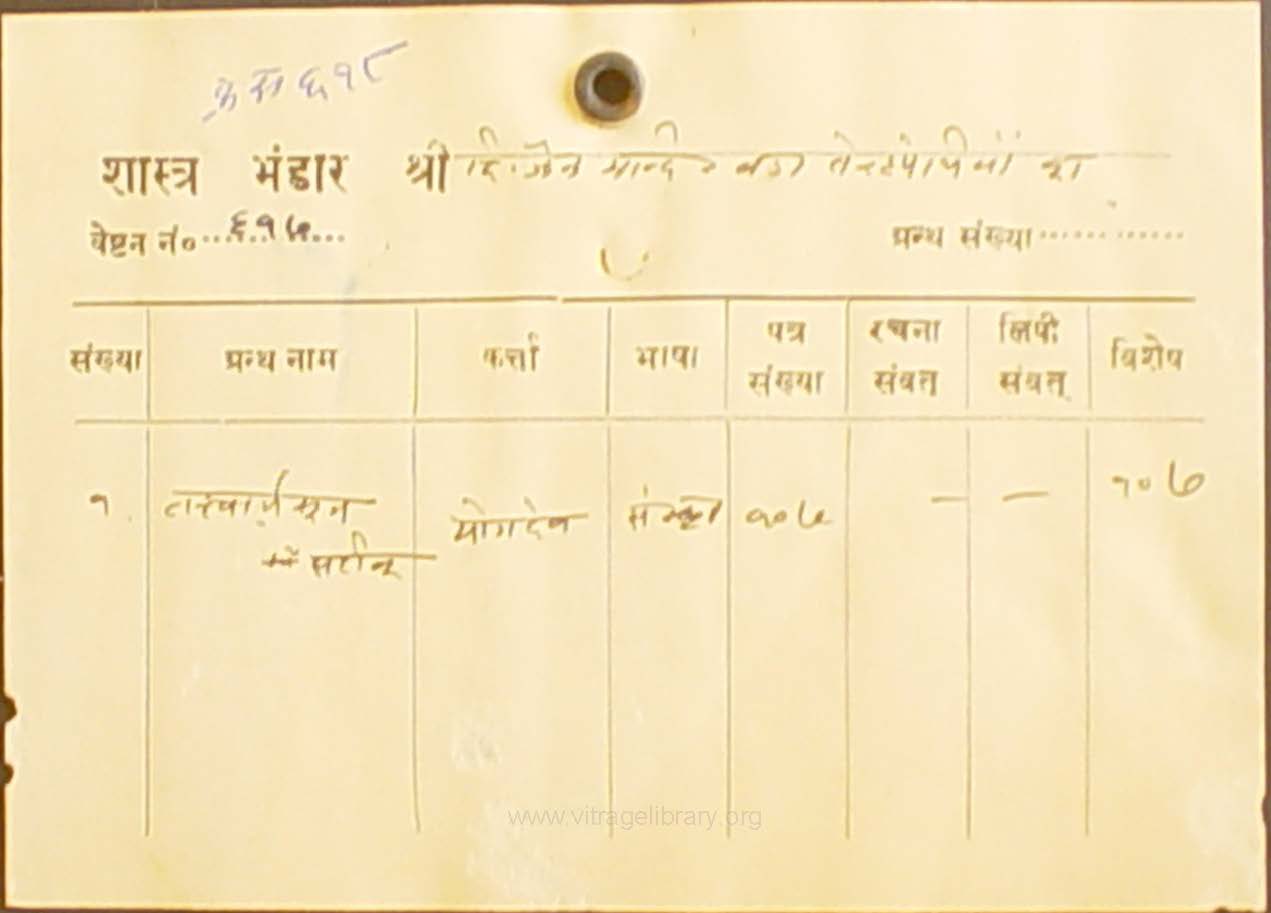 ६१८
शास्त्र भंडार श्री दि. जैन मन्दिर बडा तेरहपंथियों का
वेष्टन नं० ...६१७...
ग्रन्थ संख्या ............
संख्या ग्रन्थ नाम कर्त्ता भाषा पत्र संख्या रचना संवत् लिपी संवत् विशेष
१ तत्त्वार्थ सूत्र योगदेव संस्कृत १०७ — — १०७
सटीक
www.vitragelibrary.org